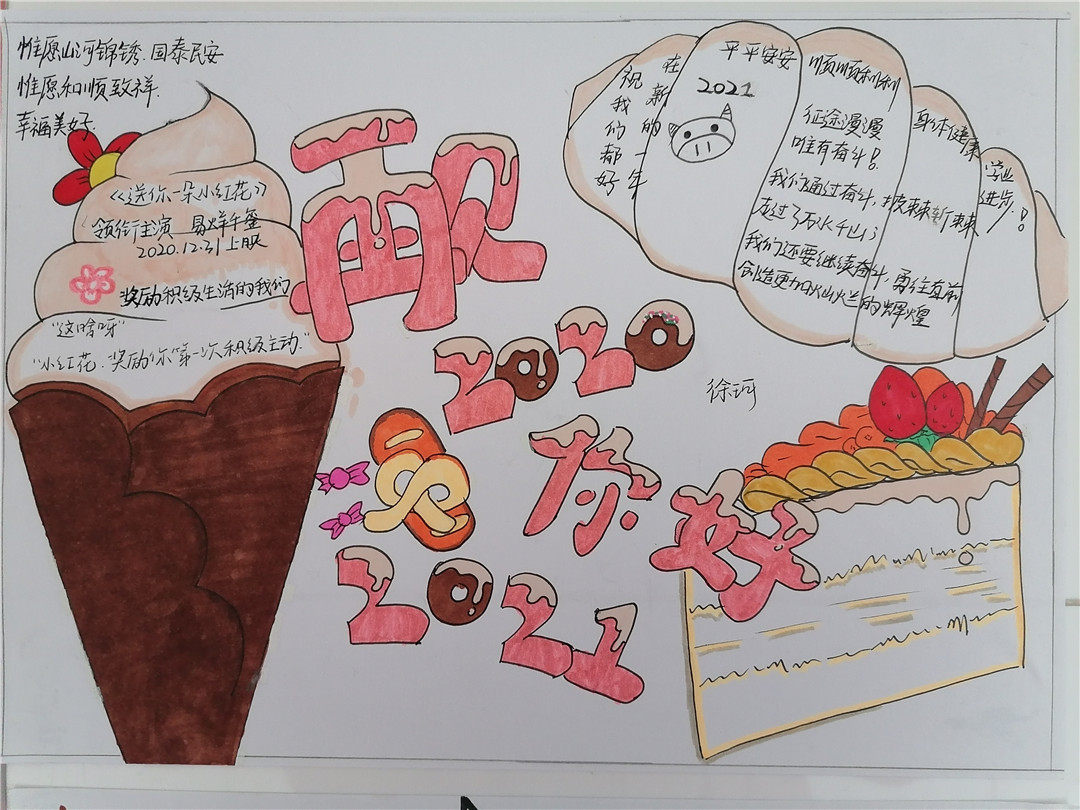 惟愿山河锦锈.国泰民安
惟愿和顺致祥.
幸福美好.
《送你一朵小红花》
领衔主演 易烊千玺
2020.12.31上映
奖励积极生活的我们
"这啥呀"
"小红花.奖励你第一次积极主动."
再见
2020
你好
2021
在新的一年
祝我们都好
平平安安
2021
顺顺利利
身体健康
学业进步!
征途漫漫
唯有奋斗!
我们通过奋斗,披荆斩棘
走过了万水千山
我们还要继续奋斗,勇往直前
创造更加灿烂的辉煌
徐珂